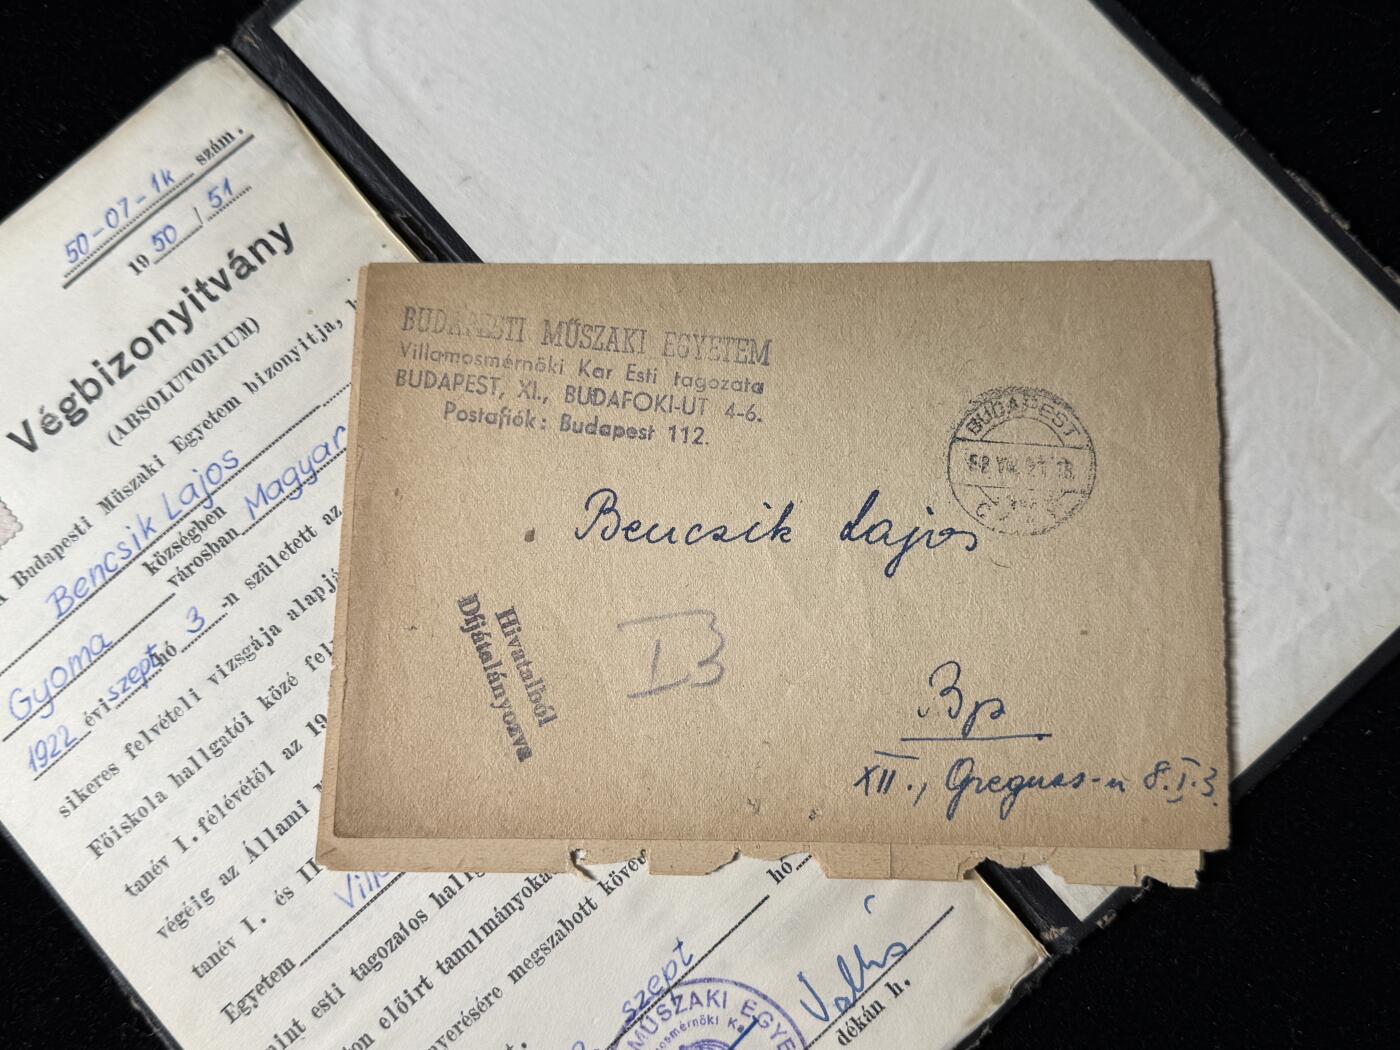 50-07-1k szám.
1950/51
Végbizonyitvány
(ABSOLUTORIUM)
A Budapesti Műszaki Egyetem bizonyitja,
Bencsik Lajos
községben
Gyoma városban Magyar
1922 évi szept hó 3 -n született az
sikeres felvételi vizsgája
Főiskola hallgatói közé
tanév I. félévétől az 19
végéig az Állami
tanév I. és II
Egyetem
mint esti tagozatos
előirt
megszabott
hó
szept
MŰSZAKI EGYE
dékán h.
BUDAPESTI MŰSZAKI EGYETEM
Villamosmérnöki Kar Esti tagozata
BUDAPEST, XI., BUDAFOKI-UT 4-6.
Postafiók: Budapest 112.
BUDAPEST
Bencsik Lajos
Hivatalból
Díjátalányozva
I3
Bp
XII., Greguss-u 8. I. 3.